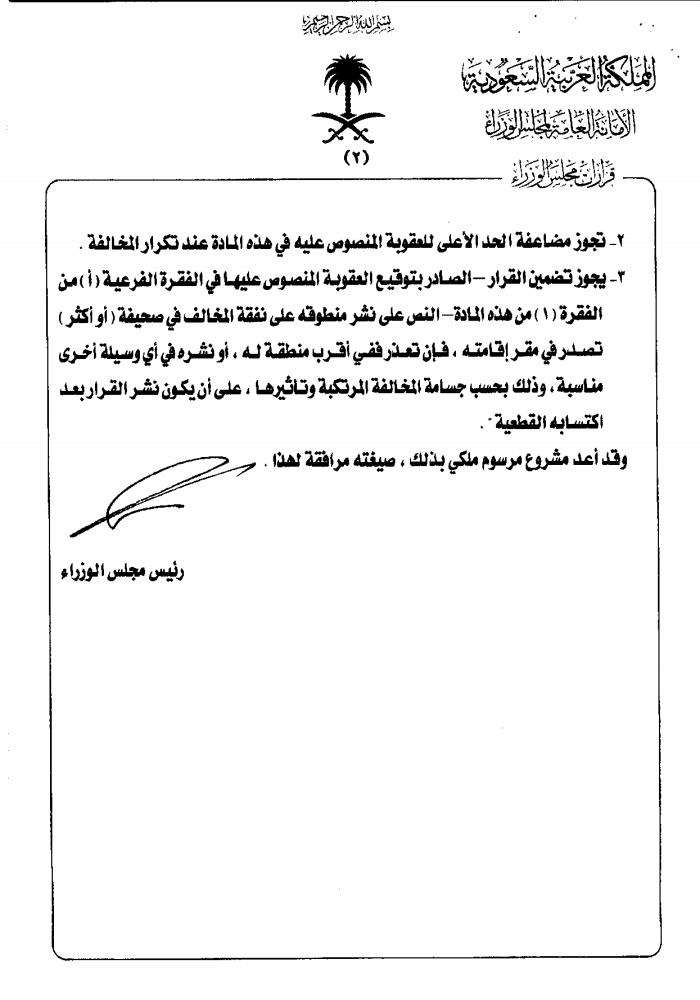 بسم الله الرحمن الرحيم
المملكة العربية السعودية
الأمانة العامة لمجلس الوزراء
(٢)
قرارات مجلس الوزراء
٢- تجوز مضاعفة الحد الأعلى للعقوبة المنصوص عليه في هذه المادة عند تكرار المخالفة .
٣- يجوز تضمين القرار –الصادر بتوقيع العقوبة المنصوص عليها في الفقرة الفرعية (أ) من
الفقرة (١) من هذه المادة– النص على نشر منطوقه على نفقة المخالف في صحيفة (أو أكثر)
تصدر في مقر إقامته ، فإن تعذر ففي أقرب منطقة له ، أو نشره في أي وسيلة أخرى
مناسبة ، وذلك بحسب جسامة المخالفة المرتكبة وتاثيرها ، على أن يكون نشر القرار بعد
اكتسابه القطعية" .
وقد أعد مشروع مرسوم ملكي بذلك ، صيغته مرافقة لهذا .
رئيس مجلس الوزراء